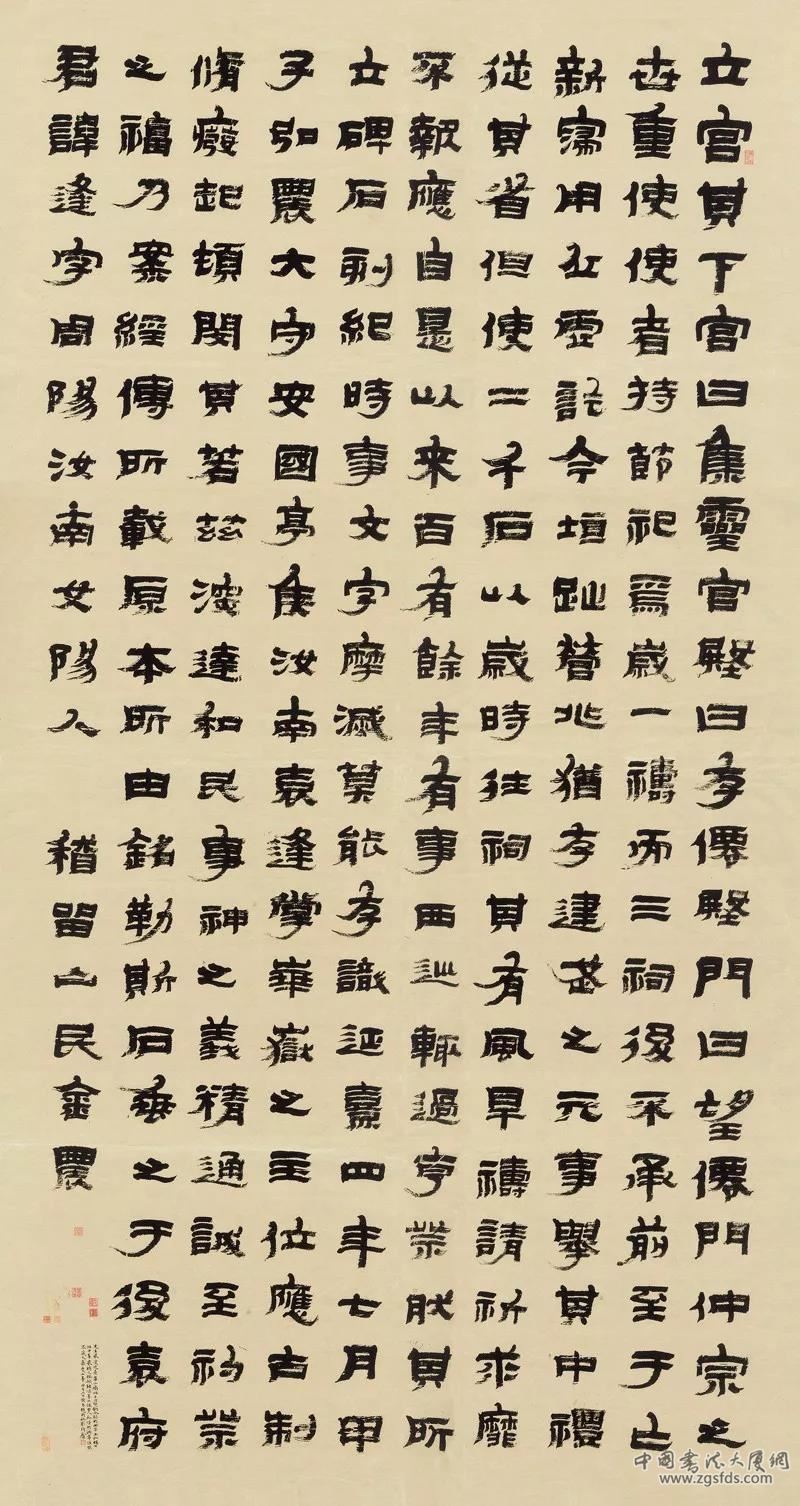 立宫其下宫曰集靈宫壂曰存僊壂門曰望僊門仲宗之
世重使使者持節祀焉歲一禱而三祠後不承前至于亡
新寖用丘虛訖今垣趾營兆猶存建武之元事舉其中禮
從其省但使二千石以歲時往祠其有風旱禱請祈求靡
不報應自是以來百有餘年有事西巡輒過亨祭然其所
立碑石刻紀時事文字摩滅莫能存識延熹四年七月甲
子弘農大守安國亭侯汝南袁逢掌華嶽之主位應古制
脩癈起頓閔其若茲深達和民事神之義精通誠至礿祭
之福乃案經傳所載原本所由銘勒斯石垂之于後袁府
君諱逢字周陽汝南女陽人 稽留山民金農
中國書法大厦網
www.zgsfds.com